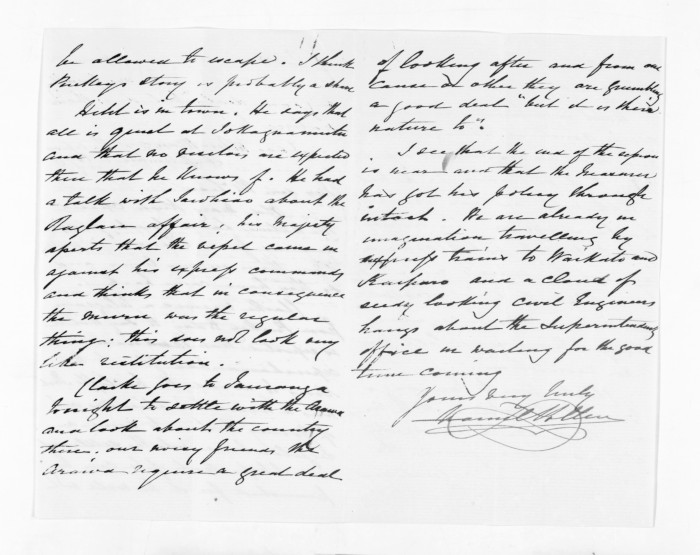 be allowed to escape. I think
Buckleys story is probably a sham
Hill is in town. He says that
all is quiet at Tokaguamutu
and that no visitors are expected
there that he knows of. He had
a talk with Tawhiao about the
Raglan affair; his majesty
asserts that the vessel came in
against his express commands
and thinks that in consequence
the muru was the regular
thing: this does not look very
like restitution.
Clarke goes to Tauranga
tonight to settle with the
and look about the country
there. our noisy friends the
Arawa require a great deal
of looking after and from one
cause or other they are grumbling
a good deal "but it is their
nature to".
I see that the end of the session
is near and that the Treasurer
has got his policy through
intact. We are already in
imagination travelling by
express trains to Waikato and
Kaipara and a cloud of
seedy looking civil Engineers
hangs about the Superintendents
office in waiting for the good
time coming
Yours very truly